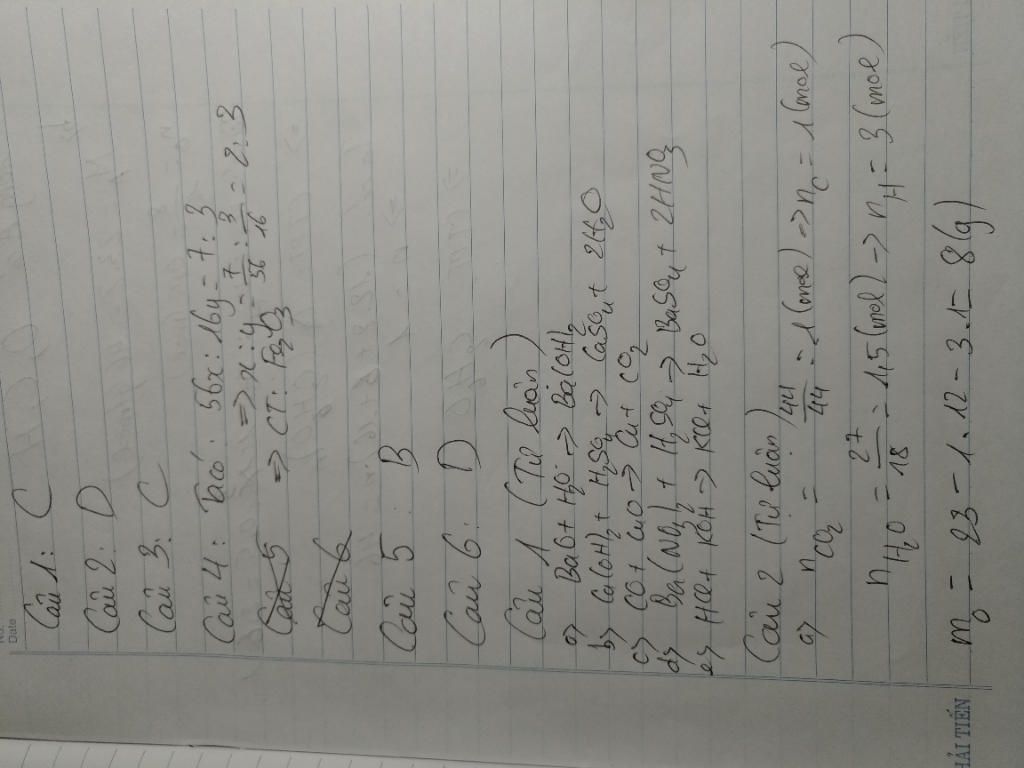 Date
Câu 1: C
Câu 2: D
Câu 3: C
Câu 4: Ta có: 56x : 16y = 7 : 3
=> x : y = 7/56 : 3/16 = 2 : 3
Câu 5 => CT: Fe2O3
Câu 6
Câu 5 : B
Câu 6: D
Câu 1 (Tự luận)
a) BaO + H2O => Ba(OH)2
b) Ca(OH)2 + H2SO4 => CaSO4 + 2H2O
c) CO + CuO => Cu + CO2
d) Ba(NO3)2 + H2SO4 => BaSO4 + 2HNO3
e) HCl + KOH => KCl + H2O
Câu 2 (Tự luận)
a) nCO2 = 44/44 = 1 (mol) => nC = 1 (mol)
nH2O = 27/18 = 1,5 (mol) => nH = 3 (mol)
mO = 23 - 1.12 - 3.1 = 8 (g)
HẢI TIẾN